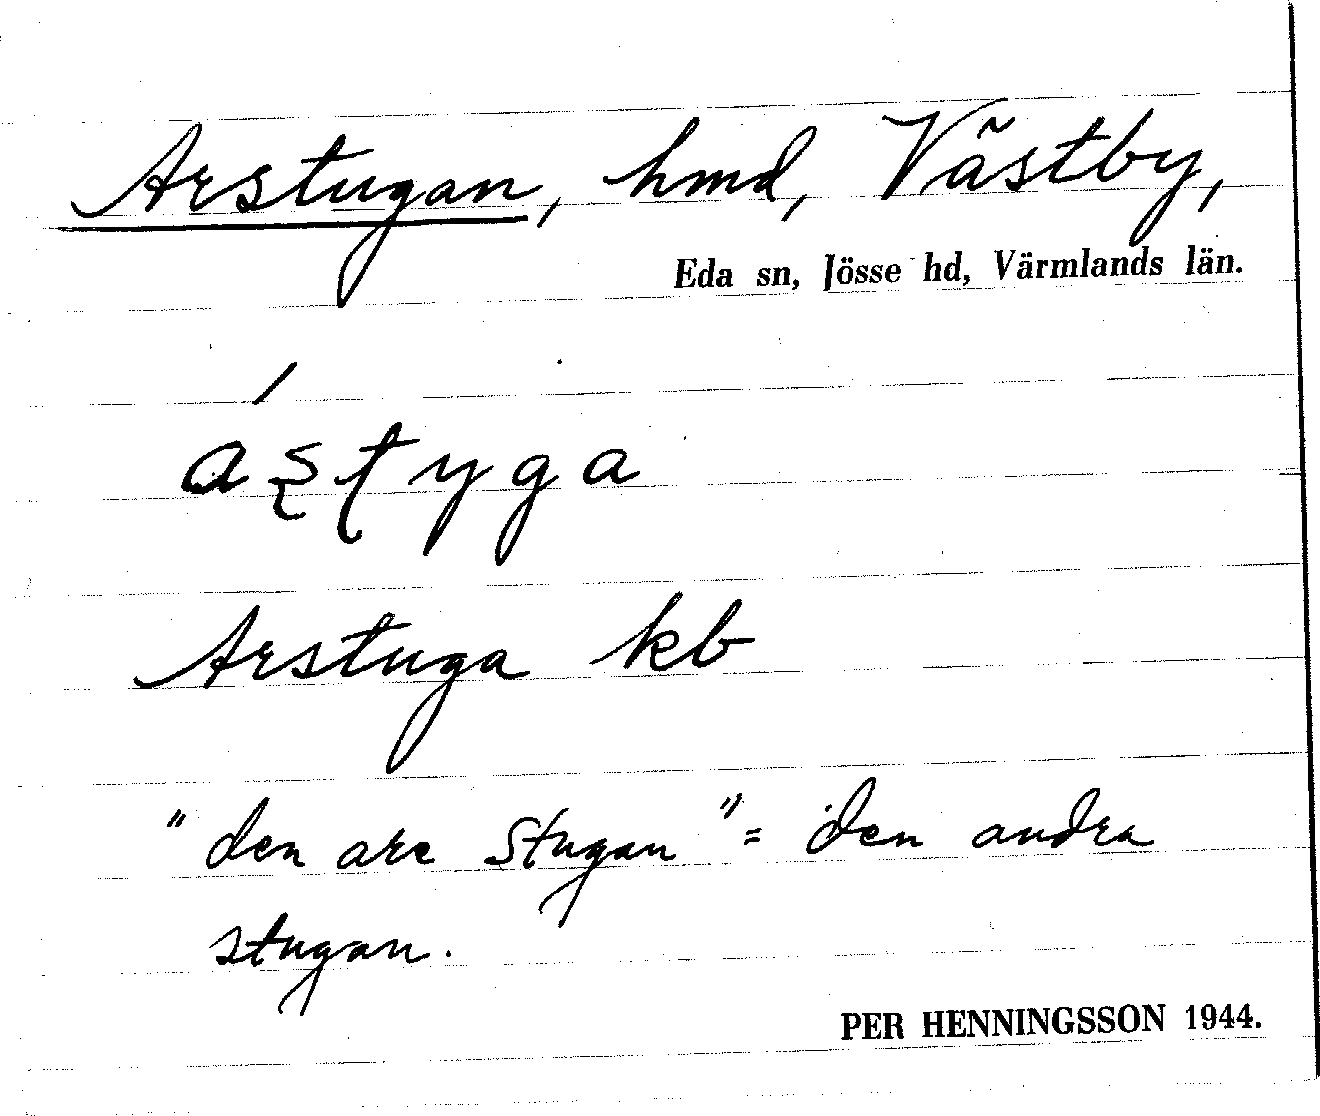 Arstugan, hmd, Västby,
Eda sn, Jösse hd, Värmlands län.
áʂʈyga
Arstuga kb
"den are stugan" = den andra
stugan.
PER HENNINGSSON 1944.